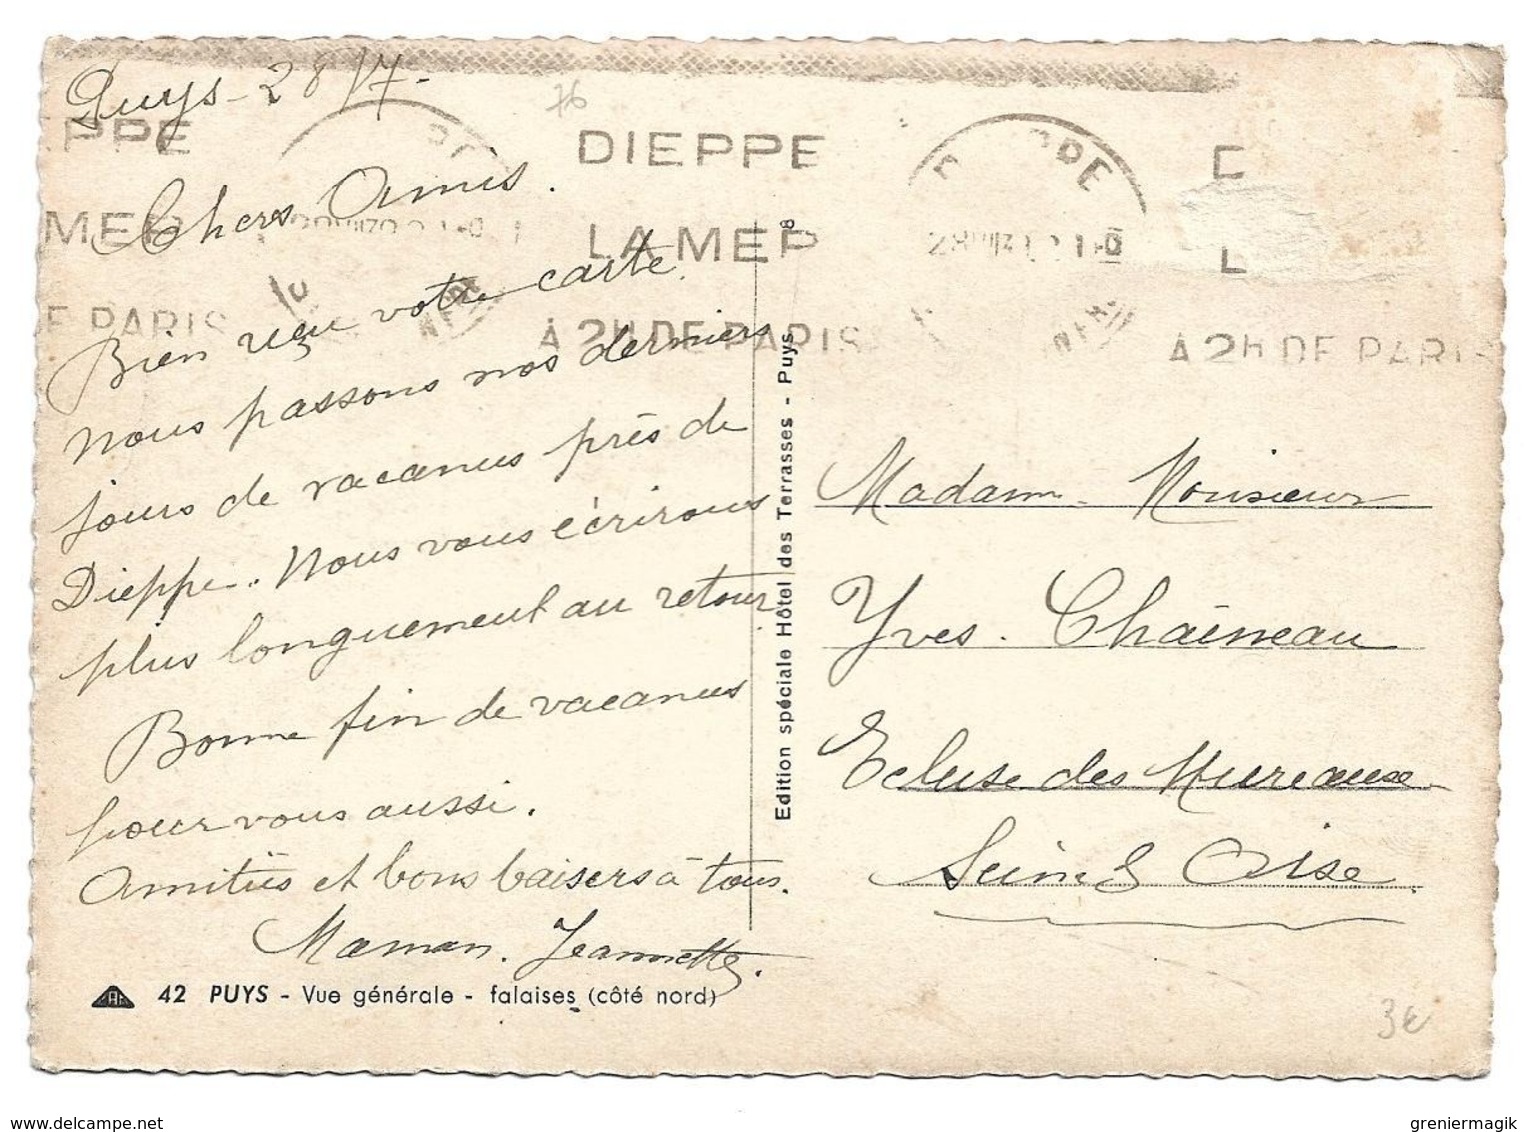 Puys - 28/7 -
76
PPE
DIEPPE
D
MER
LA MER
L
E PARIS
À 2H DE PARIS
À 2H DE PARIS
Chers Amis.
Bien reçu votre carte.
Nous passons nos derniers
jours de vacances près de
Dieppe. Nous vous écrirons
plus longuement au retour
Bonne fin de vacances
pour vous aussi.
Amitiés et bons baisers à tous.
Maman. Jeannette.
42 PUYS - Vue générale - falaises (côté nord)
Edition spéciale Hôtel des Terrasses - Puys
8
Madame Monsieur
Yves. Chaineau
Ecluse des Mureaux
Seine & Oise.
3€
www.delcampe.net
greniermagik